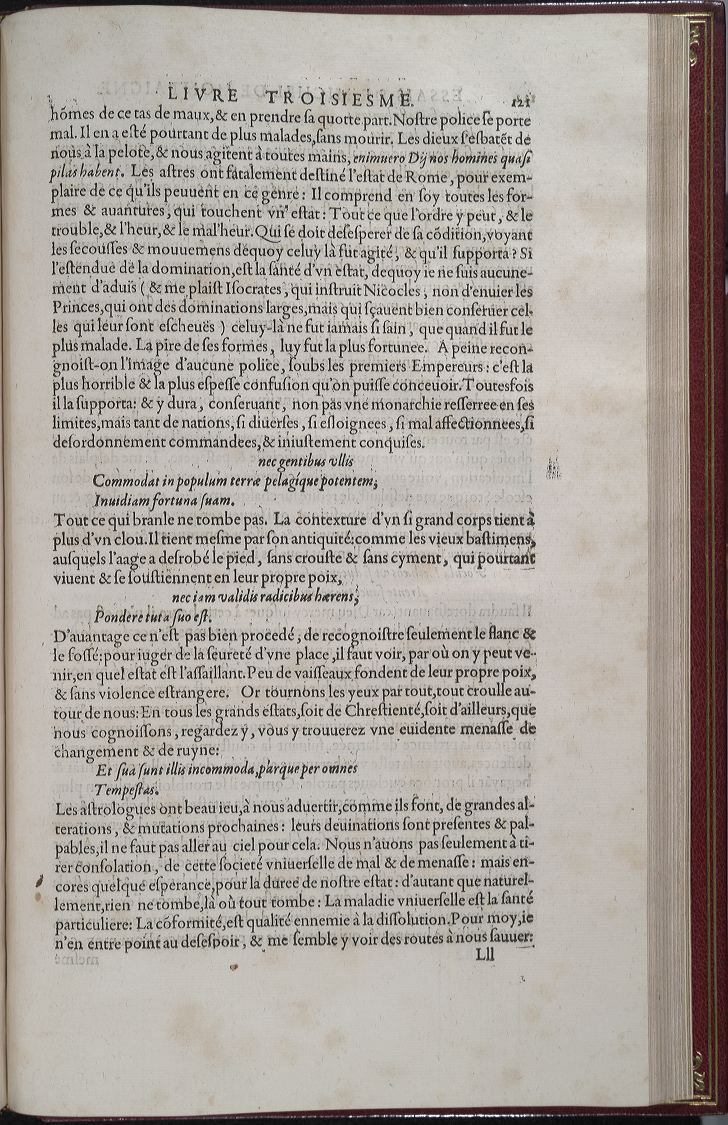 LIVRE TROISIESME. 121
hõmes de ce tas de maux, & en prendre sa quotte part. Nostre police se porte
mal. Il en a esté pourtant de plus malades, sans mourir. Les dieux s'esbatẽt de
nous à la pelote, & nous agitent à toutes mains, enimuero Dij nos homines quasi
pilas habent. Les astres ont fatalement destiné l'estat de Rome, pour exem-
plaire de ce qu'ils peuuent en ce genre: Il comprend en soy toutes les for-
mes & auantures, qui touchent vn' estat: Tout ce que l'ordre y peut, & le
trouble, & l'heur, & le mal'heur. Qui se doit desesperer de sa cõdition, voyant
les secousses & mouuemens dequoy celuy là fut agité, & qu'il supporta? Si
l'estendue de la domination, est la santé d'vn estat, dequoy ie ne suis aucune-
ment d'aduis (& me plaist Isocrates, qui instruit Nicocles, non d'enuier les
Princes, qui ont des dominations larges, mais qui sçauent bien conseruer cel-
les qui leur sont escheuës) celuy-là ne fut iamais si sain, que quand il fut le
plus malade. La pire de ses formes, luy fut la plus fortunee. A peine recon-
gnoist-on l'image d'aucune police, soubs les premiers Empereurs: c'est la
plus horrible & la plus espesse confusion qu'on puisse conceuoir. Toutesfois
il la supporta: & y dura, conseruant, non pas vne monarchie resserree en ses
limites, mais tant de nations, si diuerses, si esloignees, si mal affectionnees, si
desordonnement commandees, & iniustement conquises.
nec gentibus vllis
Commodat in populum terræ pelagique potentem,
Inuidiam fortuna suam.
Tout ce qui branle ne tombe pas. La contexture d'vn si grand corps tient à
plus d'vn clou. Il tient mesme par son antiquité: comme les vieux bastimens,
ausquels l'aage a desrobé le pied, sans crouste & sans cyment, qui pourtant
viuent & se soustiennent en leur propre poix,
nec iam validis radicibus hærens,
Pondere tuta suo est.
D'auantage ce n'est pas bien procedé, de recognoistre seulement le flanc &
le fossé: pour iuger de la seureté d'vne place, il faut voir, par où on y peut ve-
nir, en quel estat est l'assaillant. Peu de vaisseaux fondent de leur propre poix,
& sans violence estrangere. Or tournons les yeux par tout, tout croulle au-
tour de nous: En tous les grands estats, soit de Chrestienté, soit d'ailleurs, que
nous cognoissons, regardez y, vous y trouuerez vne euidente menasse de
changement & de ruyne:
Et sua sunt illis incommoda, parque per omnes
Tempestas.
Les astrologues ont beau ieu, à nous aduertir, comme ils font, de grandes al-
terations, & mutations prochaines: leurs deuinations sont presentes & pal-
pables, il ne faut pas aller au ciel pour cela. Nous n'auons pas seulement à ti-
rer consolation, de cette societé vniuerselle de mal & de menasse: mais en-
cores quelque esperance, pour la duree de nostre estat: d'autant que naturel-
lement, rien ne tombe, là où tout tombe: La maladie vniuerselle est la santé
particuliere: La cõformité, est qualité ennemie à la dissolution. Pour moy, ie
n'en entre point au desespoir, & me semble y voir des routes à nous sauuer:
Lll